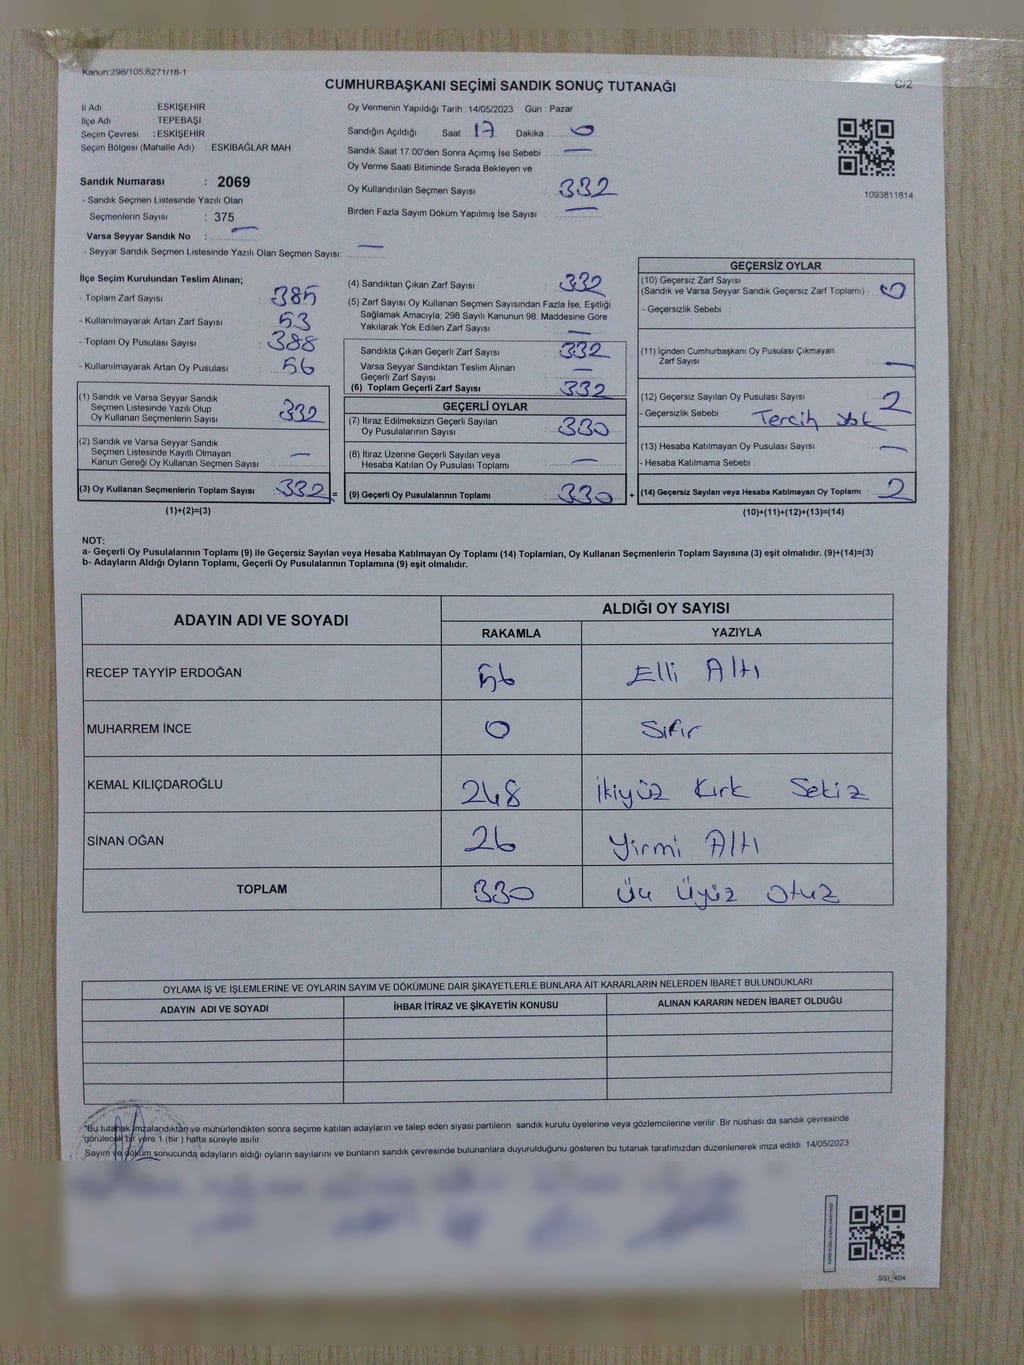 Kanun:298/105;6271/18-1
CUMHURBAŞKANI SEÇİMİ SANDIK SONUÇ TUTANAĞI
C/2
İl Adı ESKİŞEHİR
İlçe Adı TEPEBAŞI
Seçim Çevresi : ESKİŞEHİR
Seçim Bölgesi (Mahalle Adı) ESKİBAĞLAR MAH.
Sandık Numarası : 2069
- Sandık Seçmen Listesinde Yazılı Olan
Seçmenlerin Sayısı : 375
Varsa Seyyar Sandık No : —
- Seyyar Sandık Seçmen Listesinde Yazılı Olan Seçmen Sayısı: —
Oy Vermenin Yapıldığı Tarih : 14/05/2023 Gün : Pazar
Sandığın Açıldığı Saat : 17 Dakika : 0
Sandık Saat 17.00'den Sonra Açılmış İse Sebebi : —
Oy Verme Saati Bitiminde Sırada Bekleyen ve
Oy Kullandırılan Seçmen Sayısı : 332
Birden Fazla Sayım Döküm Yapılmış İse Sayısı : —
1093811814
İlçe Seçim Kurulundan Teslim Alınan;
- Toplam Zarf Sayısı : 385
- Kullanılmayarak Artan Zarf Sayısı : 53
- Toplam Oy Pusulası Sayısı : 388
- Kullanılmayarak Artan Oy Pusulası : 56
(1) Sandık ve Varsa Seyyar Sandık
Seçmen Listesinde Yazılı Olup
Oy Kullanan Seçmenlerin Sayısı : 332
(2) Sandık ve Varsa Seyyar Sandık
Seçmen Listesinde Kayıtlı Olmayan
Kanun Gereği Oy Kullanan Seçmen Sayısı : —
(3) Oy Kullanan Seçmenlerin Toplam Sayısı : 332 =
(1)+(2)=(3)
(4) Sandıktan Çıkan Zarf Sayısı : 332
(5) Zarf Sayısı Oy Kullanan Seçmen Sayısından Fazla İse, Eşitliği
Sağlamak Amacıyla; 298 Sayılı Kanunun 98. Maddesine Göre
Yakılarak Yok Edilen Zarf Sayısı : —
Sandıkta Çıkan Geçerli Zarf Sayısı : 332
Varsa Seyyar Sandıktan Teslim Alınan
Geçerli Zarf Sayısı : —
(6) Toplam Geçerli Zarf Sayısı : 332
GEÇERLİ OYLAR
(7) İtiraz Edilmeksizin Geçerli Sayılan
Oy Pusulalarının Sayısı : 330
(8) İtiraz Üzerine Geçerli Sayılan veya
Hesaba Katılan Oy Pusulası Toplamı : —
(9) Geçerli Oy Pusulalarının Toplamı : 330 +
GEÇERSİZ OYLAR
(10) Geçersiz Zarf Sayısı
(Sandık ve Varsa Seyyar Sandık Geçersiz Zarf Toplamı) : 0
- Geçersizlik Sebebi :
(11) İçinden Cumhurbaşkanı Oy Pusulası Çıkmayan
Zarf Sayısı : —
(12) Geçersiz Sayılan Oy Pusulası Sayısı : 2
- Geçersizlik Sebebi : Tercih yok
(13) Hesaba Katılmayan Oy Pusulası Sayısı : —
- Hesaba Katılmama Sebebi :
(14) Geçersiz Sayılan veya Hesaba Katılmayan Oy Toplamı : 2
(10)+(11)+(12)+(13)=(14)
NOT:
a- Geçerli Oy Pusulalarının Toplamı (9) ile Geçersiz Sayılan veya Hesaba Katılmayan Oy Toplamı (14) Toplamları, Oy Kullanan Seçmenlerin Toplam Sayısına (3) eşit olmalıdır. (9)+(14)=(3)
b- Adayların Aldığı Oyların Toplamı, Geçerli Oy Pusulalarının Toplamına (9) eşit olmalıdır.
ADAYIN ADI VE SOYADI ALDIĞI OY SAYISI
RAKAMLA YAZIYLA
RECEP TAYYİP ERDOĞAN 56 Elli Altı
MUHARREM İNCE 0 Sıfır
KEMAL KILIÇDAROĞLU 248 İkiyüz Kırk Sekiz
SİNAN OĞAN 26 Yirmi Altı
TOPLAM 330 Üç Üyüz Otuz
OYLAMA İŞ VE İŞLEMLERİNE VE OYLARIN SAYIM VE DÖKÜMÜNE DAİR ŞİKAYETLERLE BUNLARA AİT KARARLARIN NELERDEN İBARET BULUNDUKLARI
ADAYIN ADI VE SOYADI İHBAR İTİRAZ VE ŞİKAYETİN KONUSU ALINAN KARARIN NEDEN İBARET OLDUĞU
"Bu tutanak imzalandıktan ve mühürlendikten sonra seçime katılan adayların ve talep eden siyasi partilerin sandık kurulu üyelerine veya gözlemcilerine verilir. Bir nüshası da sandık çevresinde
görülecek bir yere 1 (bir ) hafta süreyle asılır.
Sayım ve döküm sonucunda adayların aldığı oyların sayılarını ve bunların sandık çevresinde bulunanlara duyurulduğunu gösteren bu tutanak tarafımızdan düzenlenerek imza edildi. 14/05/2023
SSI_404